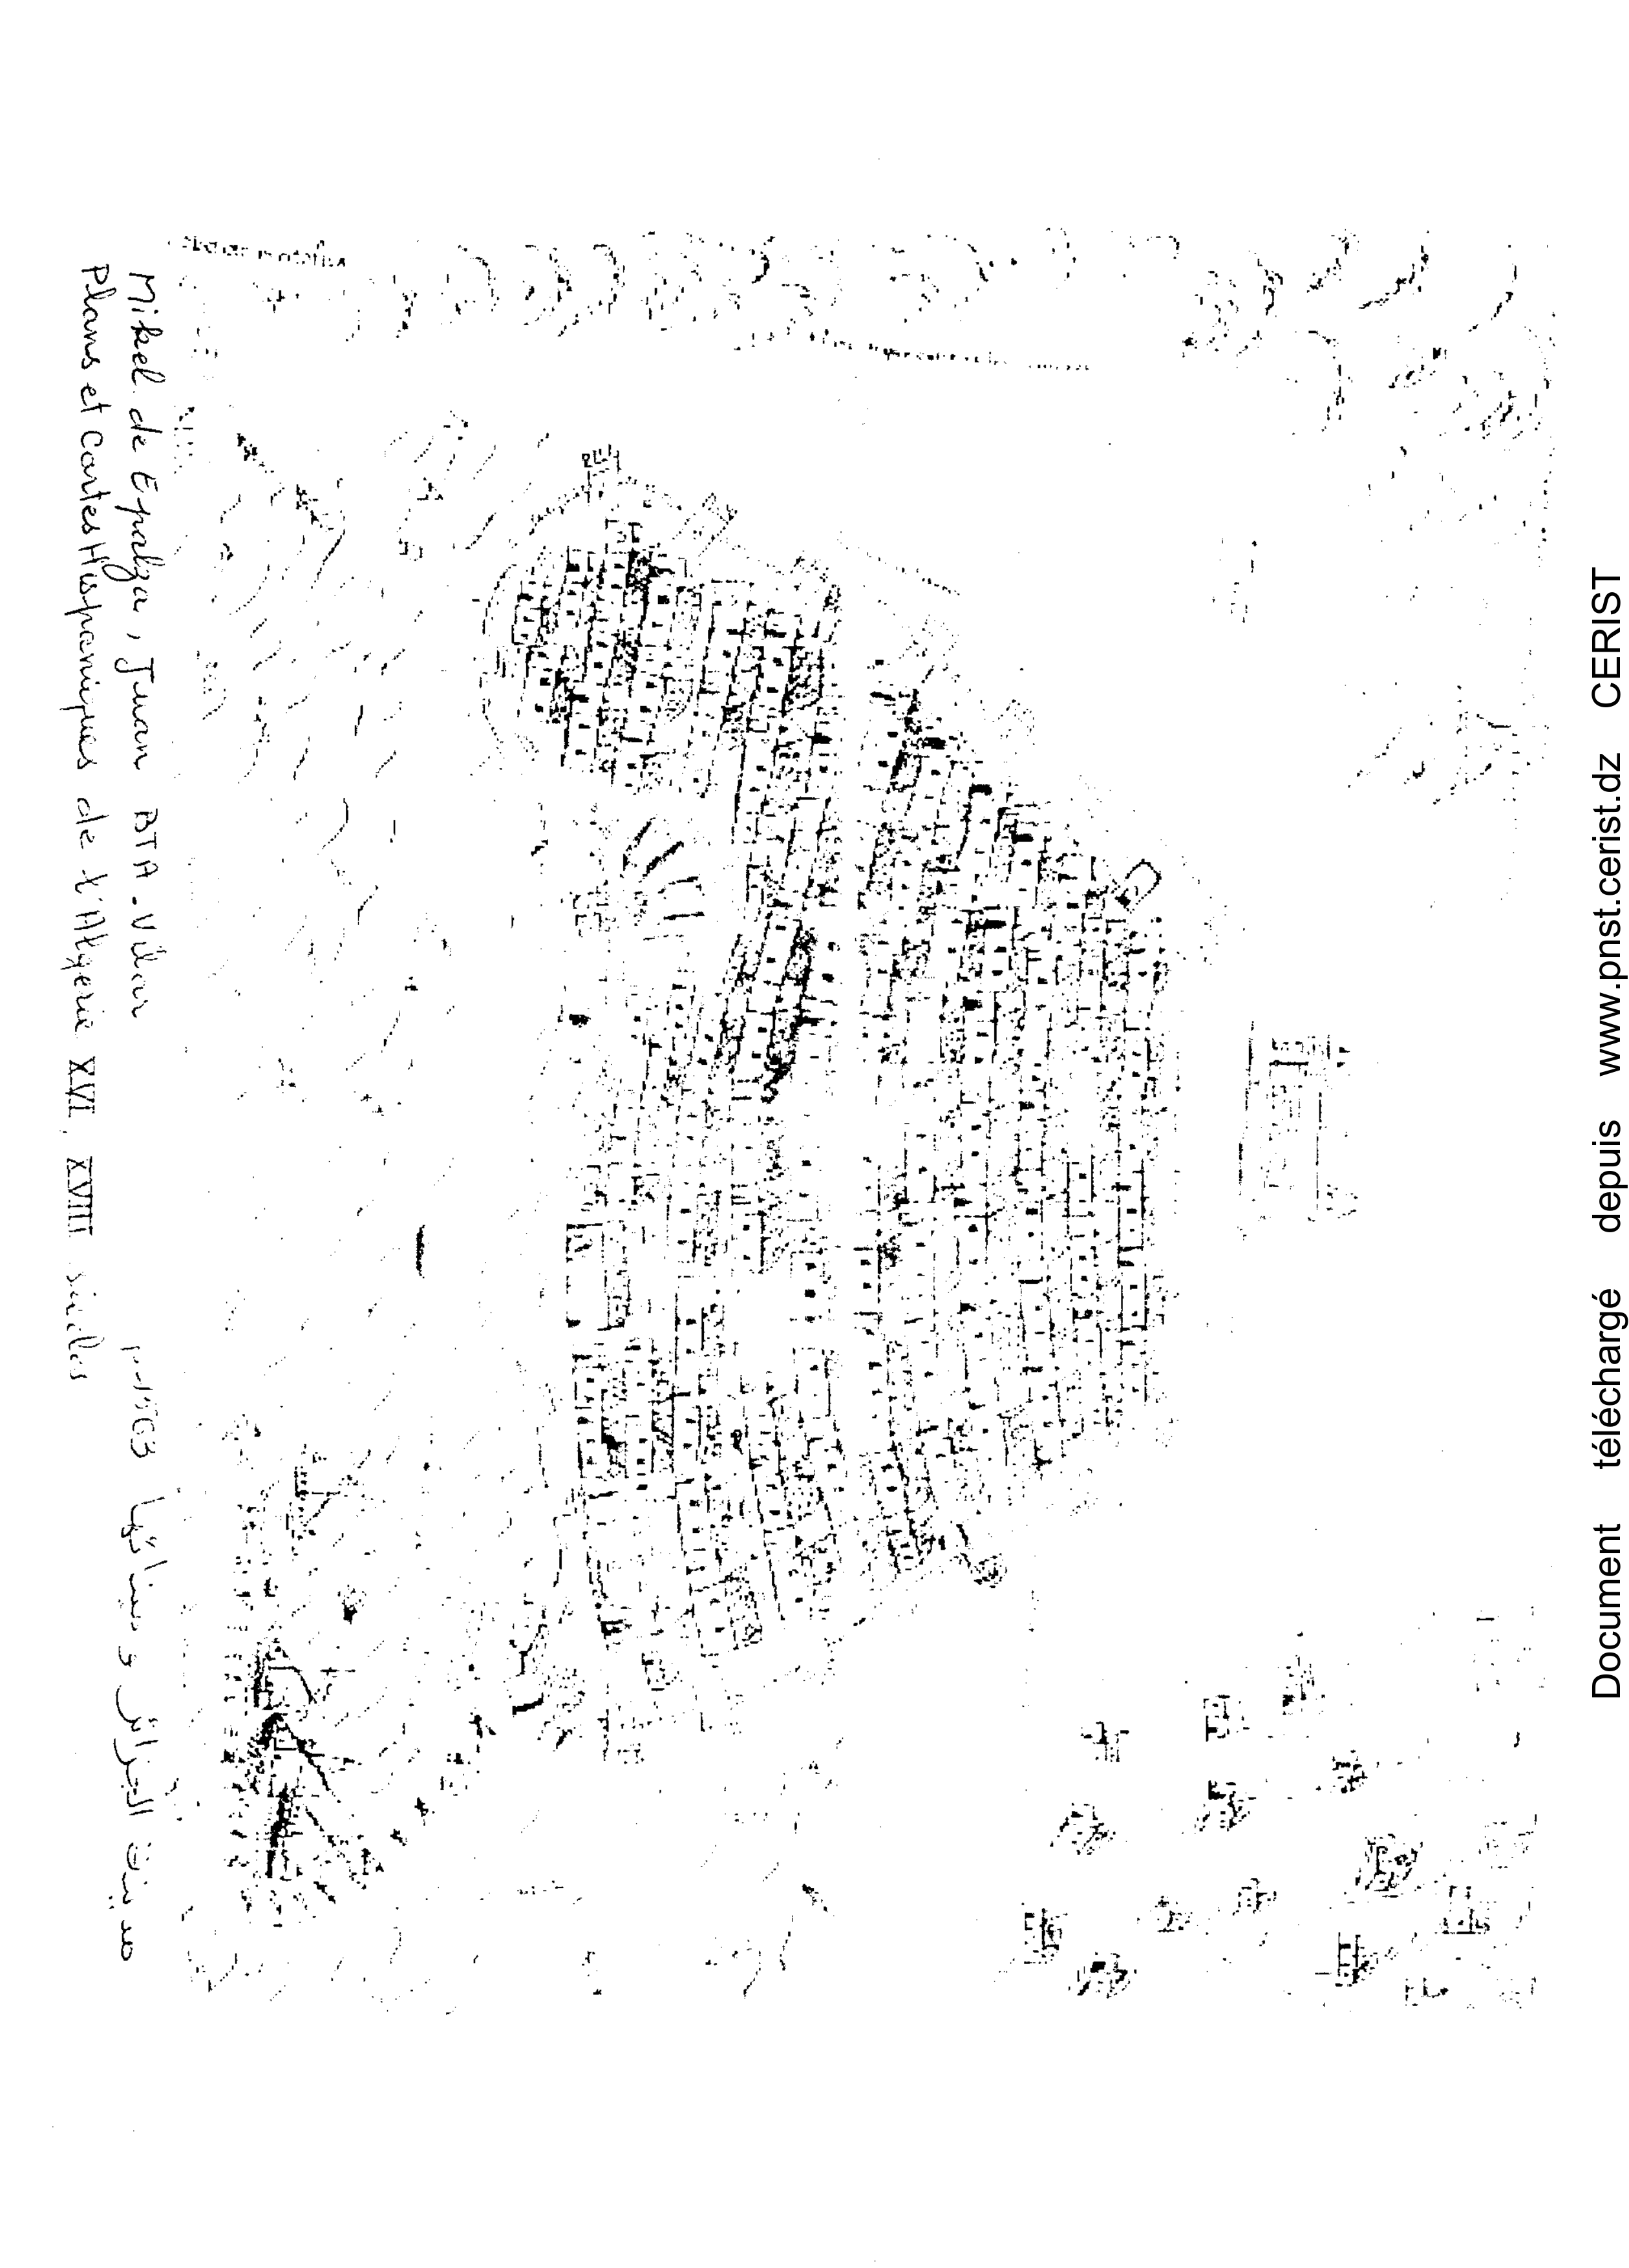 مدينة الجزائر و مينائها
Mikel de Epalza, Juan BTA. Vilar
Plans et Cartes Hispaniques de l'Algerie XVI, XVIII siecles
Document téléchargé depuis www.pnst.cerist.dz CERIST